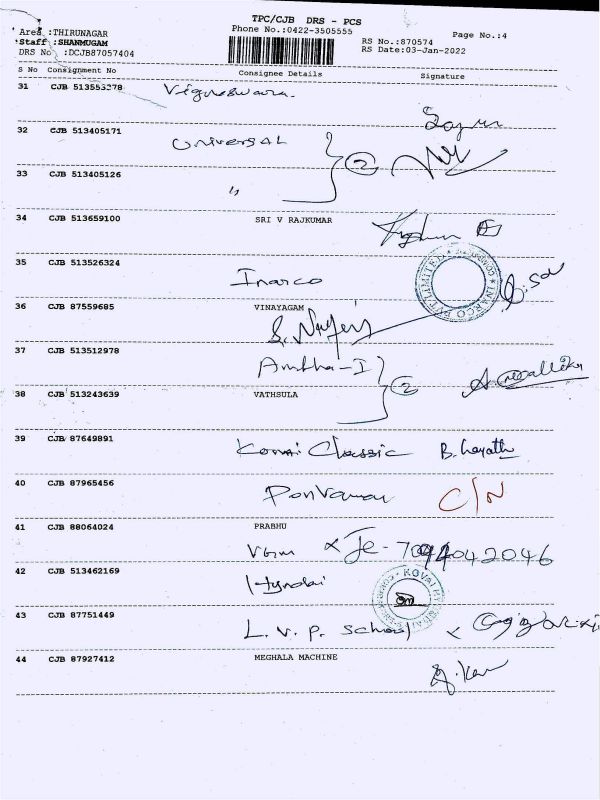 TPC/CJB DRS - PCS
Area :THIRUNAGAR Phone No.:0422-3505555 Page No.:4
Staff :SHANMUGAM RS No.:870574
DRS No :DCJB87057404 RS Date:03-Jan-2022
S No Consignment No Consignee Details Signature
31 CJB 513553278 Vigneswara.
32 CJB 513405171 Universal
2
33 CJB 513405126 "
34 CJB 513659100 SRI V RAJKUMAR
35 CJB 513526324 Inarco
INARCO PVT LIMITED
36 CJB 87559685 VINAYAGAM
37 CJB 513512978 Ambha-I
2
38 CJB 513243639 VATHSULA
39 CJB 87649891 Kovai Classic
40 CJB 87965456 C/N
41 CJB 88064024 PRABHU
42 CJB 513462169 Hyndai
KOVAI
43 CJB 87751449 L.V.P. School
44 CJB 87927412 MEGHALA MACHINE